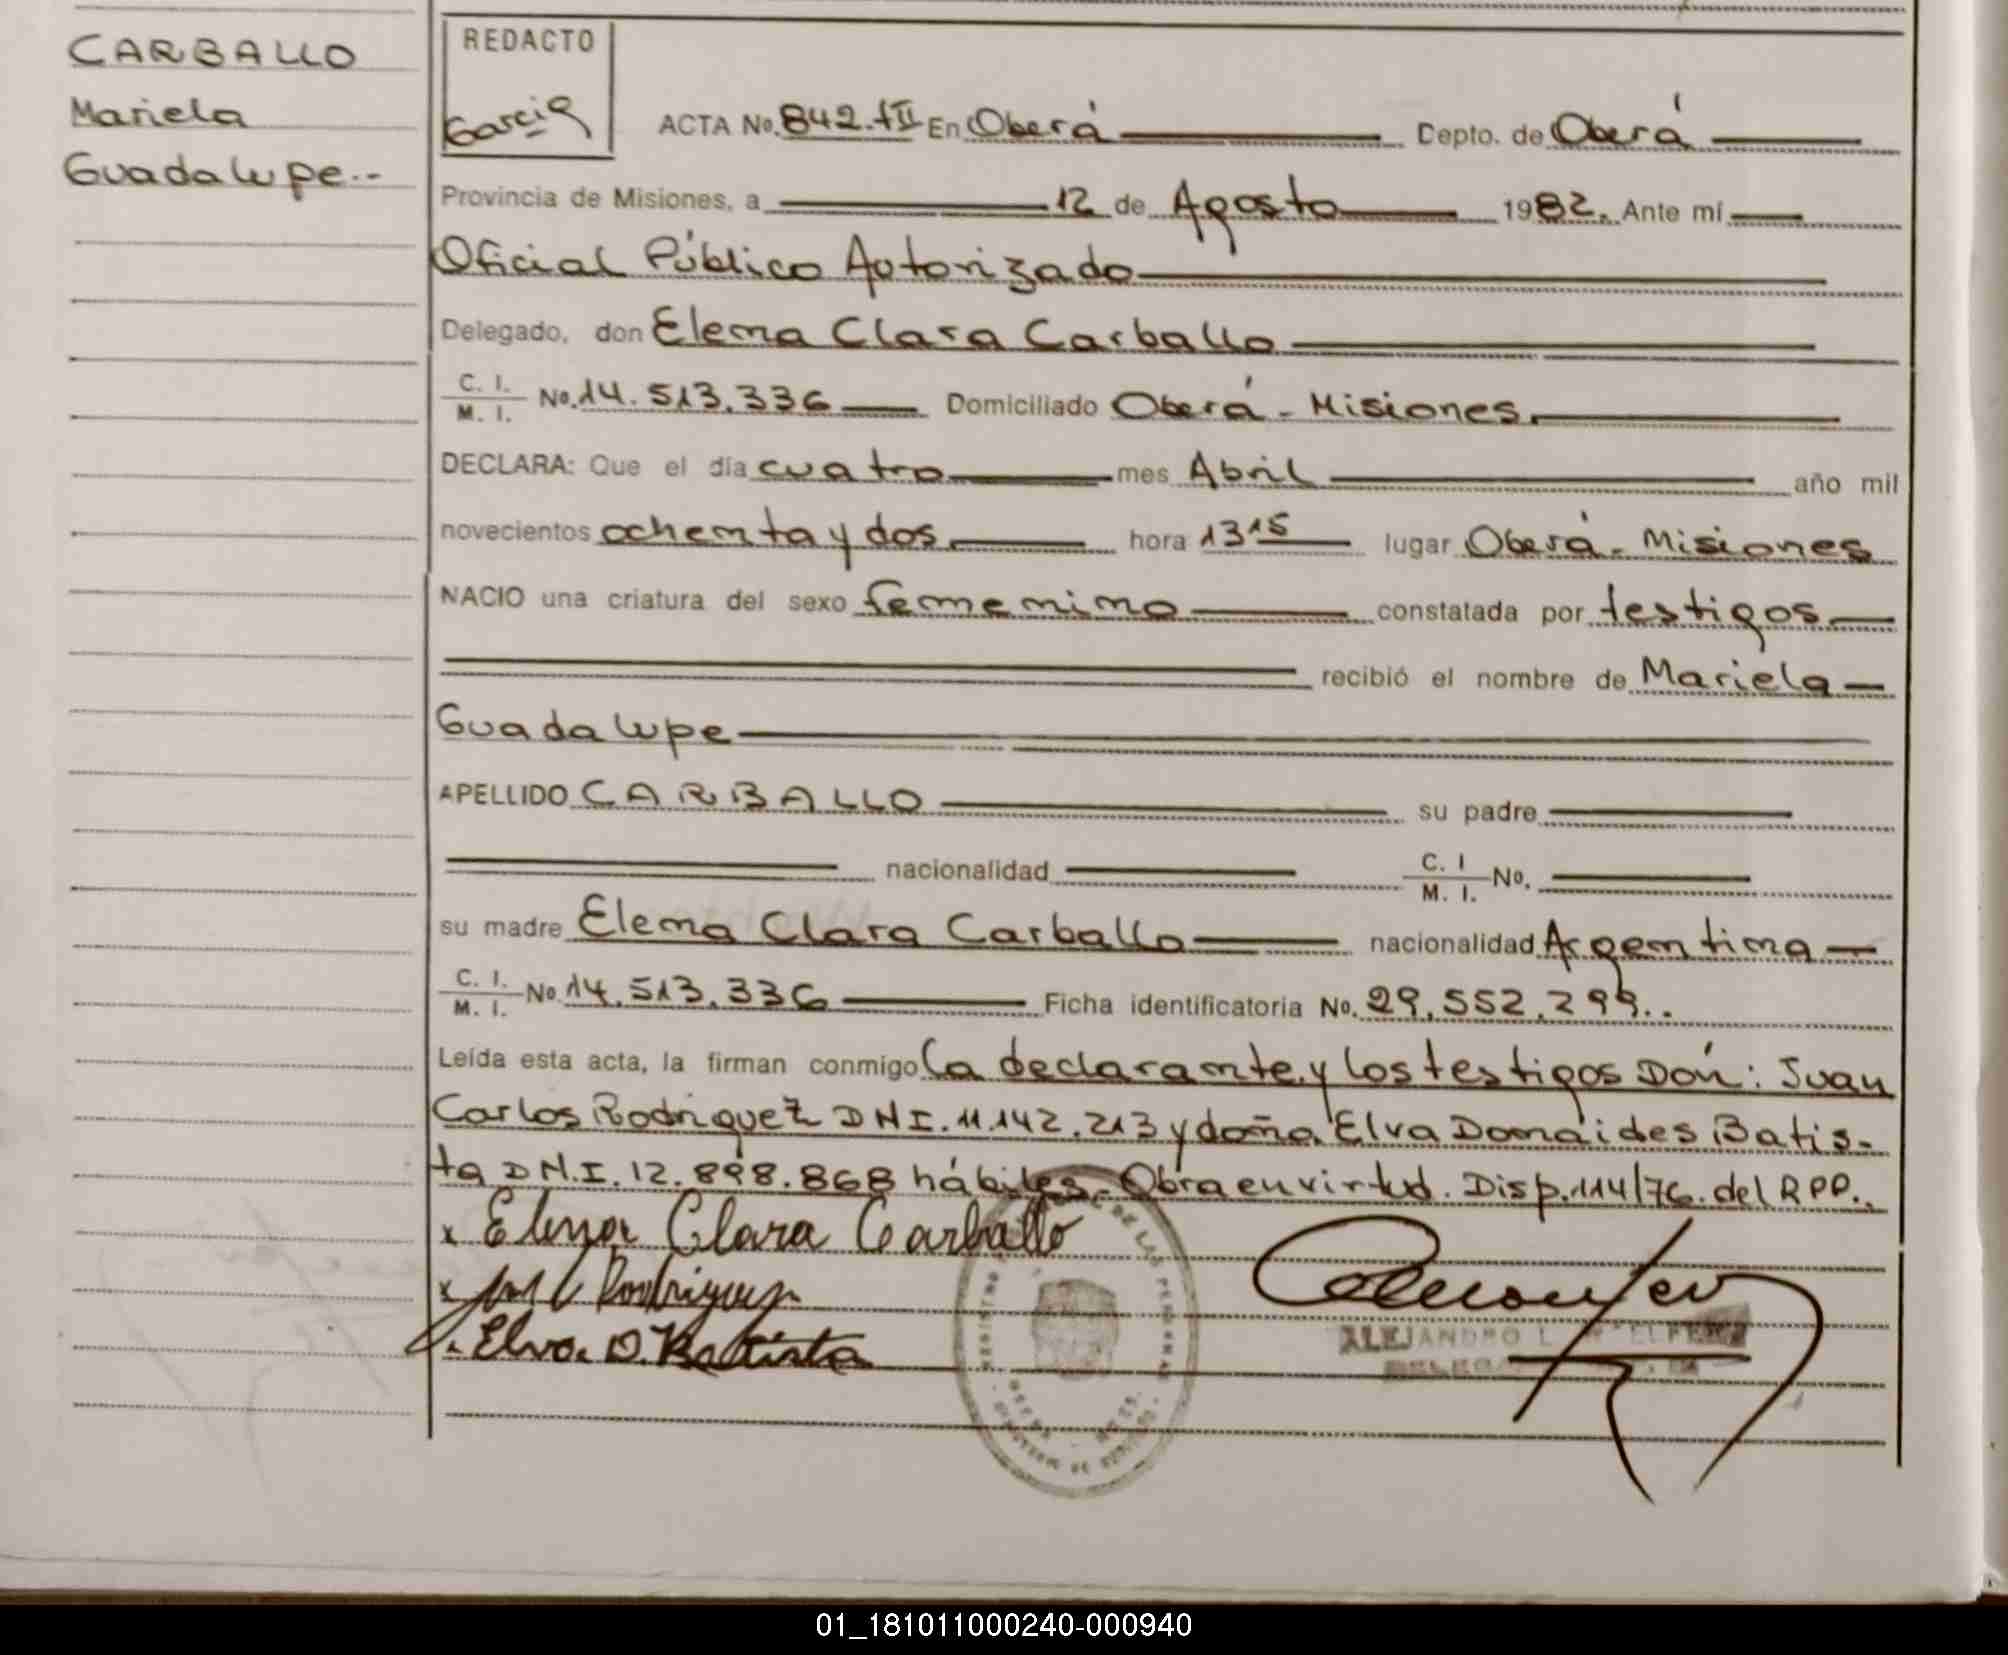 CARBALLO
Mariela
Guadalupe..
REDACTO
Garcia
ACTA No. 842.tII En Oberá Depto. de Oberá
Provincia de Misiones, a 12 de Agosto 1982. Ante mí
Oficial Público Autorizado
Delegado, don Elena Clara Carballo
C. I. / M. I. No. 14.513.336 Domiciliado Oberá - Misiones.
DECLARA: Que el día cuatro mes Abril año mil
novecientos ochenta y dos hora 13 15 lugar Oberá - Misiones
NACIO una criatura del sexo femenino constatada por testigos
recibió el nombre de Mariela
Guadalupe
APELLIDO CARBALLO su padre
nacionalidad C. I / M. I. No.
su madre Elena Clara Carballo nacionalidad Argentina
C. I. / M. I. No. 14.513.336 Ficha identificatoria No. 29.552.299..
Leída esta acta, la firman conmigo la declarante y los testigos Dón: Juan
Carlos Rodriguez DNI. 11.142.213 y doña Elva Domaides Batis-
ta DN.I. 12.898.868 hábiles. Obra en virtud. Disp. 114/76. del RPP..
x Elena Clara Carballo
x C Rodriguez
Elva. D. Batista
ALEJANDRO L.
DE LAS PERSONAS
01_181011000240-000940